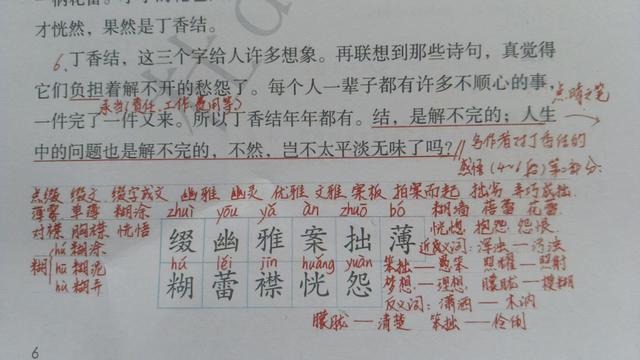 才恍然，果然是丁香结。
6.丁香结，这三个字给人许多想象。再联想到那些诗句，真觉得
它们负担着解不开的愁怨了。每个人一辈子都有许多不顺心的事，
承当(责任、工作、费用等)
点睛之笔
一件完了一件又来。所以丁香结年年都有。结，是解不完的；人生
中的问题也是解不完的，不然，岂不太平淡无味了吗？
写作者对丁香结的
感悟(4~6段)第二部分。
点缀 缀文 缀字成文 幽雅 幽灵 优雅 文雅 案板 拍案而起 拙劣 弄巧成拙
薄雾 单薄 糊涂 zhuì yōu yǎ àn zhuō bó 糊墙 蓓蕾 花蕾
对襟 胸襟 恍悟 缀 幽 雅 案 拙 薄 恍惚 抱怨 怨恨
糊 hú 糊涂
hū 糊泥
hù 糊弄
hú lěi jīn huǎng yuàn
糊 蕾 襟 恍 怨
近反义词：浑浊—污浊
笨拙—愚笨 照耀—照射
梦想—理想 朦胧—模糊
反义词：潇洒—木讷
朦胧—清楚 笨拙—伶俐
6